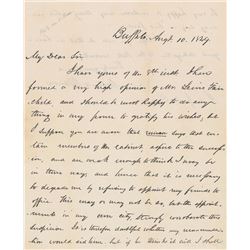 Buffalo, Aug't 10. 1849
My Dear Sir,
I have yours of the 8th inst. I have
formed a very high opinion of Mr. Lewis Fair
child, and should be most happy to do any
thing in my power to gratify his wishes, but
I suppose you are aware that rumor says that cer
tain members of the cabinet, agree to the
and are weak enough to think I may be
in their way; and hence that it is necessary
to degrade me by refusing to appoint my friends to
office. This may or may not be so, but the appoint
ments in my own city, strongly corroborate this
suspicion. It is therefore doubtful whether my recommenda
tion would aid him, but if he thinks it will I shall